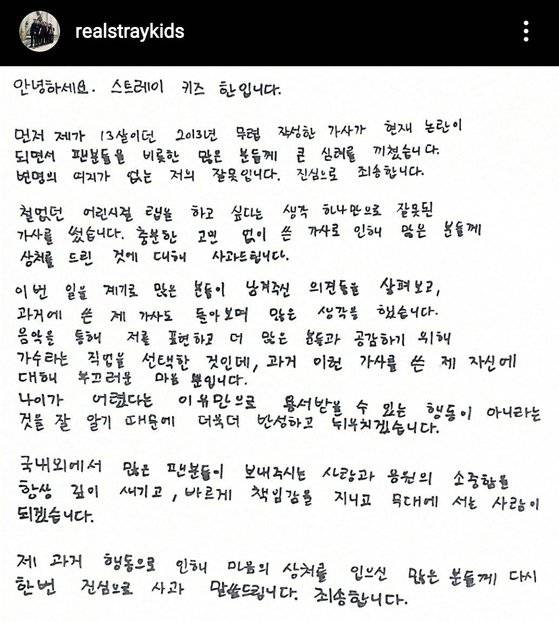 realstraykids
안녕하세요. 스트레이 키즈 한입니다.
먼저 제가 13살이던 2013년 무렵 작성한 가사가 현재 논란이
되면서 팬분들을 비롯한 많은 분들께 큰 심려를 끼쳤습니다.
변명의 여지가 없는 저의 잘못입니다. 진심으로 죄송합니다.
철없던 어린시절 랩을 하고 싶다는 생각 하나만으로 잘못된
가사를 썼습니다. 충분한 고민 없이 쓴 가사로 인해 많은 분들께
상처를 드린 것에 대해 사과드립니다.
이번 일을 계기로 많은 분들이 남겨주신 의견들을 살펴보고,
과거에 쓴 제 가사도 돌아보며 많은 생각을 했습니다.
음악을 통해 저를 표현하고 더 많은 분들과 공감하기 위해
가수라는 직업을 선택한 것인데, 과거 이런 가사를 쓴 제 자신에
대해 부끄러운 마음 뿐입니다.
나이가 어렸다는 이유만으로 용서받을 수 있는 행동이 아니라는
것을 잘 알기 때문에 더욱더 반성하고 뉘우치겠습니다.
국내외에서 많은 팬분들이 보내주시는 사랑과 응원의 소중함을
항상 깊이 새기고, 바르게 책임감을 지니고 무대에 서는 사람이
되겠습니다.
제 과거 행동으로 인해 마음의 상처를 입으신 많은 분들께 다시
한번 진심으로 사과 말씀드립니다. 죄송합니다.